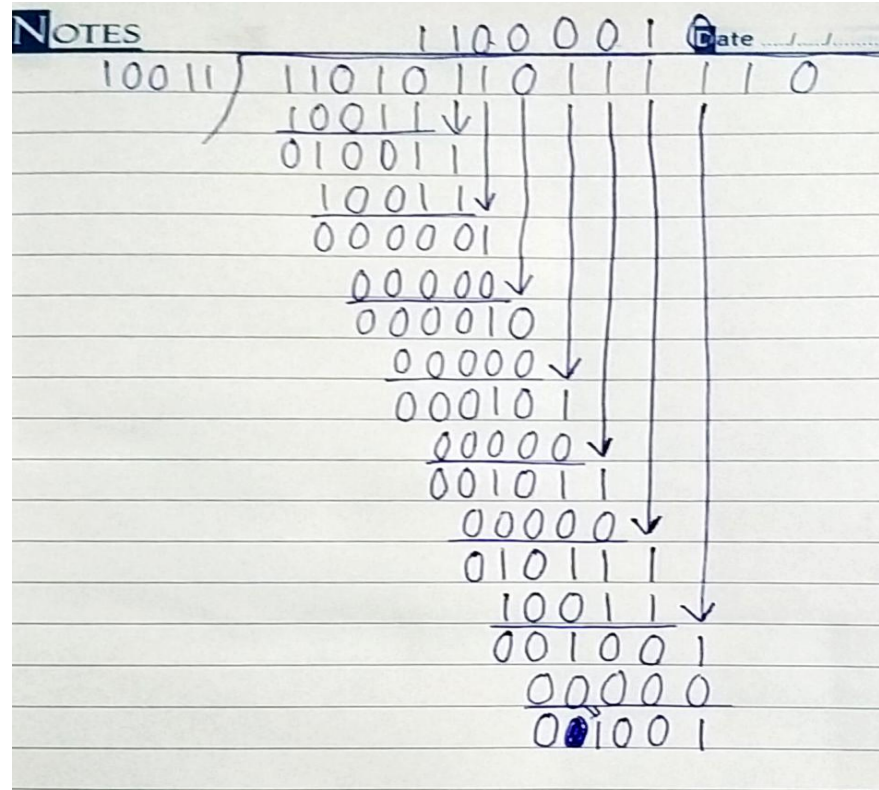 NOTES 1 1 0 0 0 0 1 0 Date ..../..../....
10011 ) 1 1 0 1 0 1 1 0 1 1 1 1 1 0
1 0 0 1 1
0 1 0 0 1 1
1 0 0 1 1
0 0 0 0 0 1
0 0 0 0 0
0 0 0 0 1 0
0 0 0 0 0
0 0 0 1 0 1
0 0 0 0 0
0 0 1 0 1 1
0 0 0 0 0
0 1 0 1 1 1
1 0 0 1 1
0 0 1 0 0 1
0 0 0 0 0
0 0 1 0 0 1